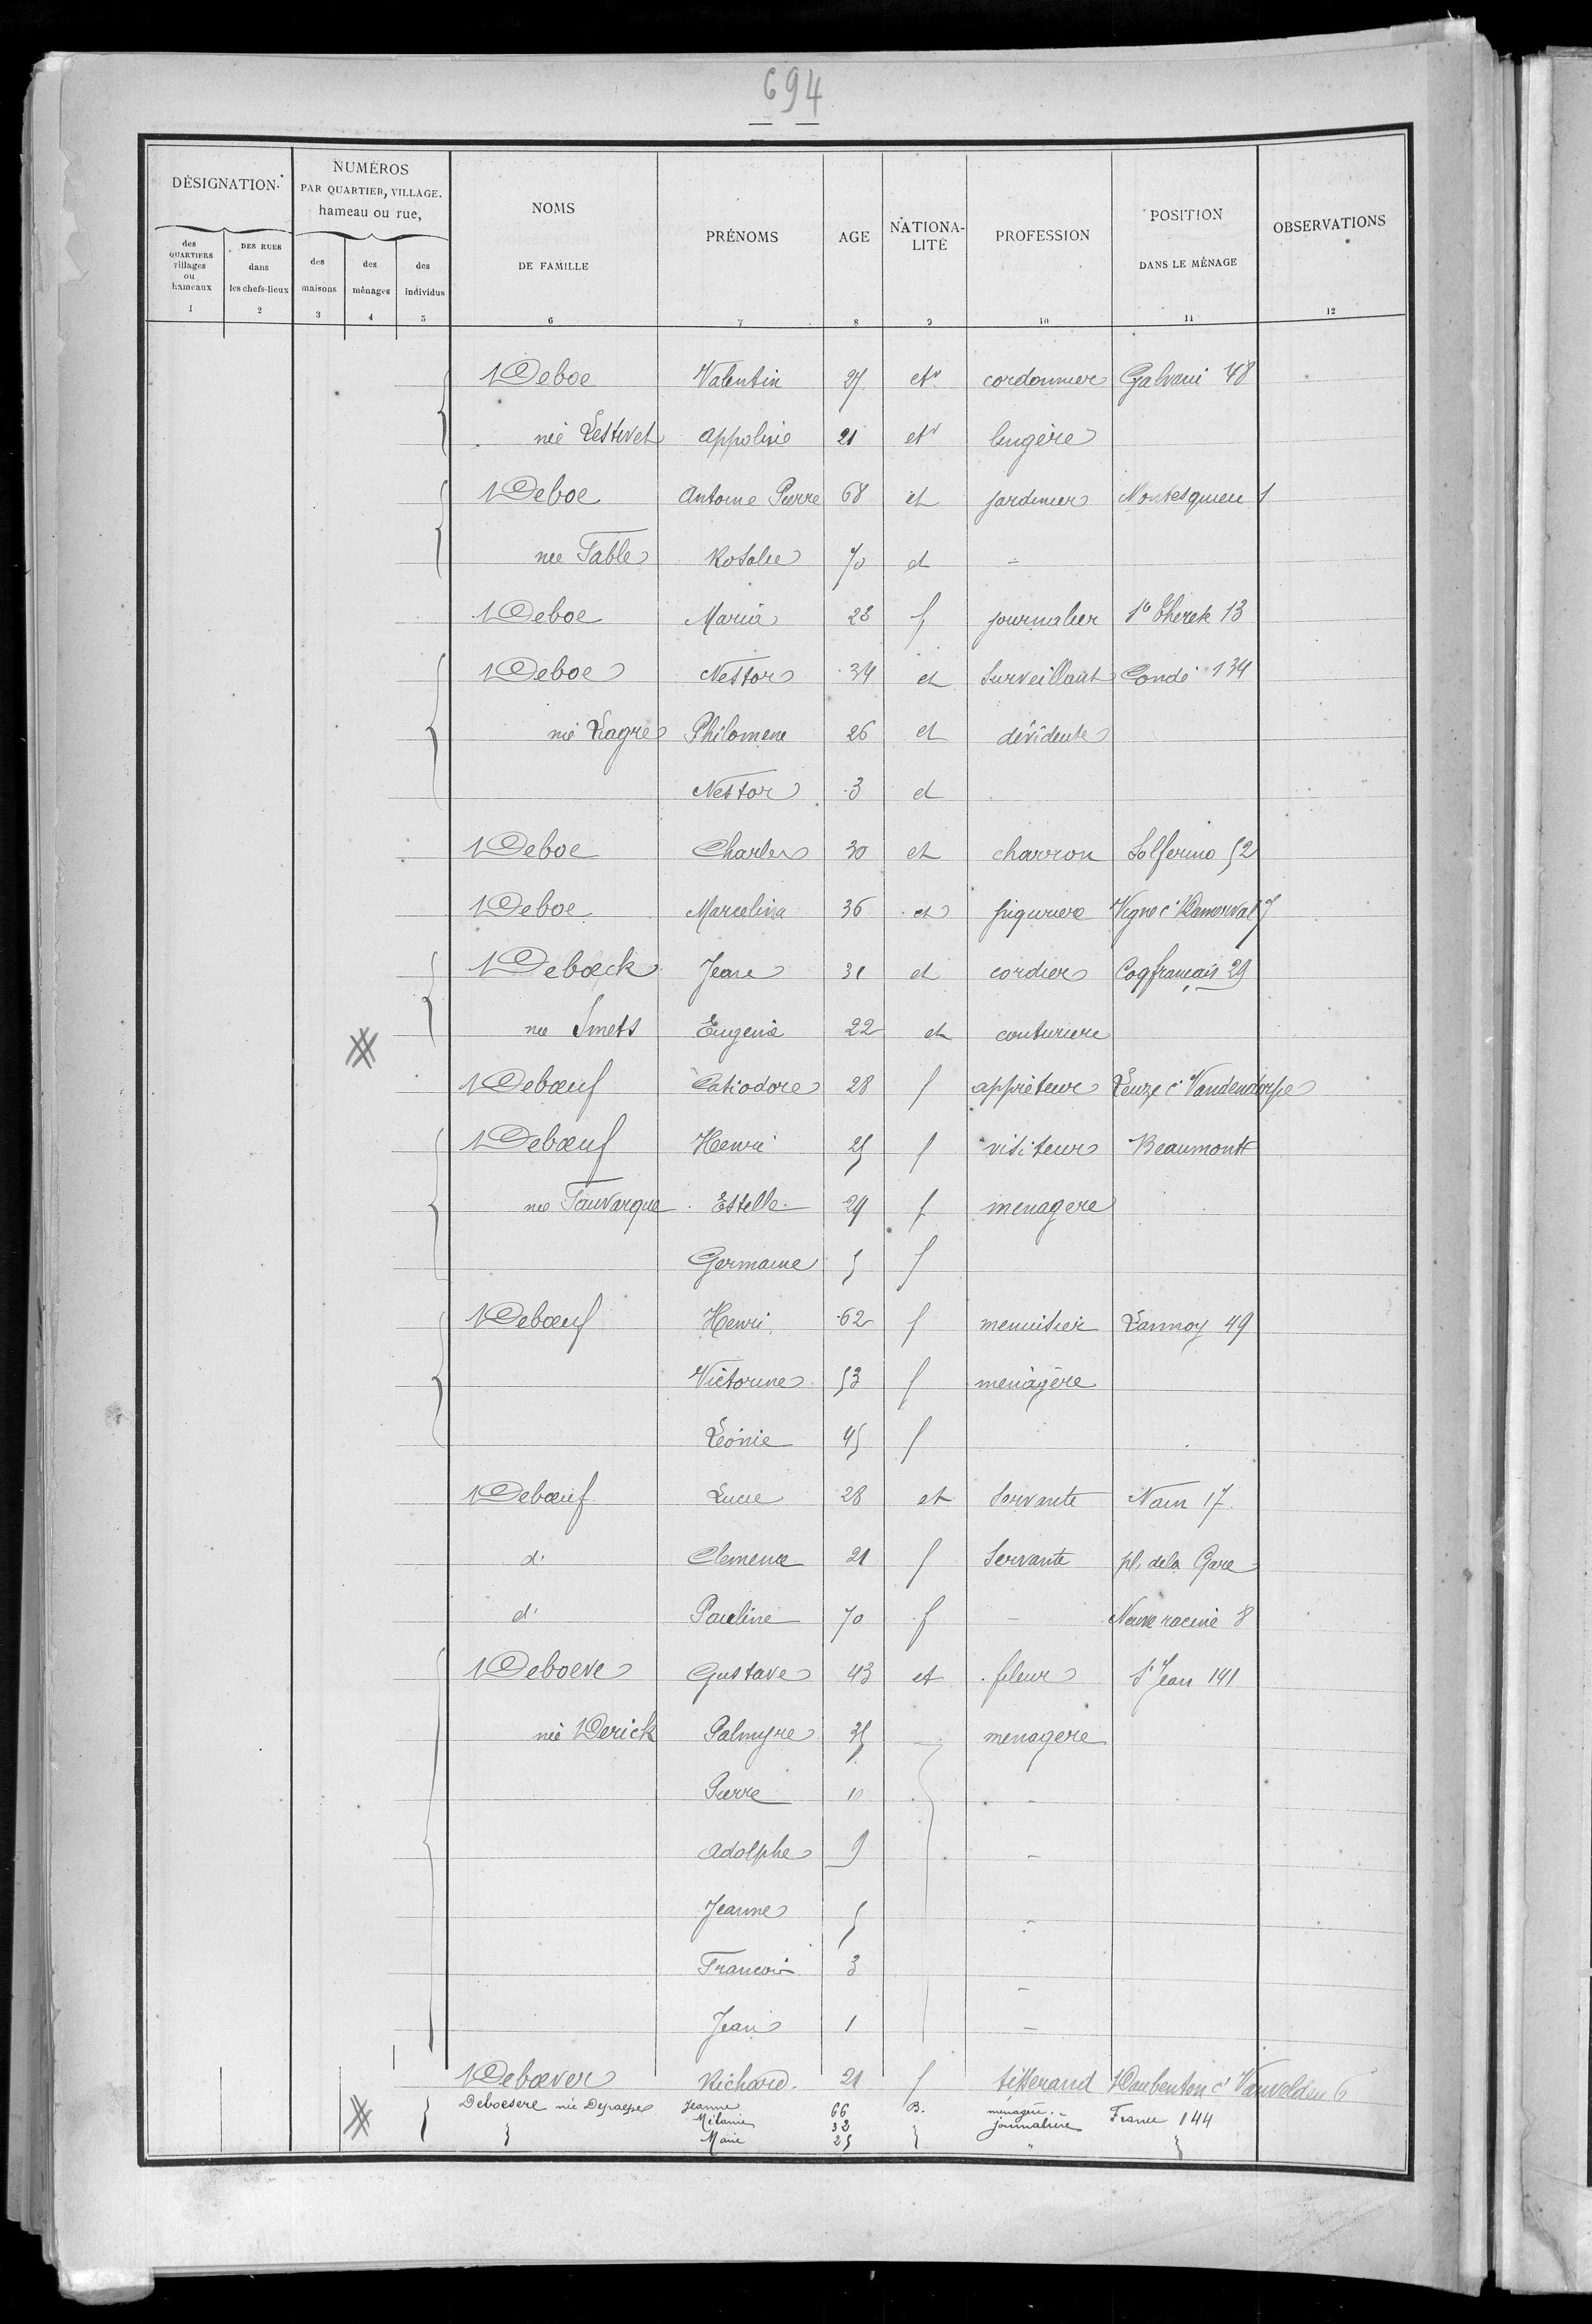 694
DÉSIGNATION
NUMÉROS
PAR QUARTIER, VILLAGE.
hameau ou rue,
NOMS
DE FAMILLE
PRÉNOMS
AGE
NATIONA-
LITÉ
PROFESSION
POSITION
DANS LE MÉNAGE
OBSERVATIONS
des
QUARTIERS
villages
ou
hameaux
DES RUES
dans
les chefs-lieux
des
maisons
des
ménages
des
individus
1 2 3 4 5 6 7 8 9 10 11 12
Deboe Valentin 27 etr cordonnier Galvani 48
née Lestivet Appolinie 21 etr lingère
Deboe Antoine Pierre 68 et jardinier Montesquieu 1
née Fable Rosalie 70 et -
Deboe Maria 28 f journalier 13
Deboe Nestor 34 et Surveillant Condé 134
née Lagre Philomene 26 et
Nestor 3 et
Deboe Charles 30 et charron Solferino 52
Deboe Marcelina 36 et piqurière Vigne c. Damerval 7
Deboeck Jean 31 et cordier Coq français 29
née Smets Eugenie 22 et couturiere
Deboeuf 28 f appreteur Leuze c. Vandendorpe
Deboeuf Henri 25 f visiteur Beaumont
née Fauvarque Estelle 24 f menagere
Germaine 5 f
Deboeuf Henri 62 f menuisier Lannoy 49
Victorine 53 f menagère
Léonie 45 f
Deboeuf Lucie 28 et Servante Nain 17
d. Clemence 21 f Servante pl. de la Gare
d. Pauline 70 f - Neuve racine 8
Deboeve Gustave 43 et fileur St Jean 141
née Derick Palmyre 35 menagere
Pierre 10 -
Adolphe 9 -
Jeanne 5 -
Francois 3 -
Jean 1 -
Deboever Richard 21 f tisserand Daubenton c. Vanvelden 6
Deboesere née Depaepe Jeanne 66 B. ménagère
Mélanie 32 journalière France 144
Marie 25 "